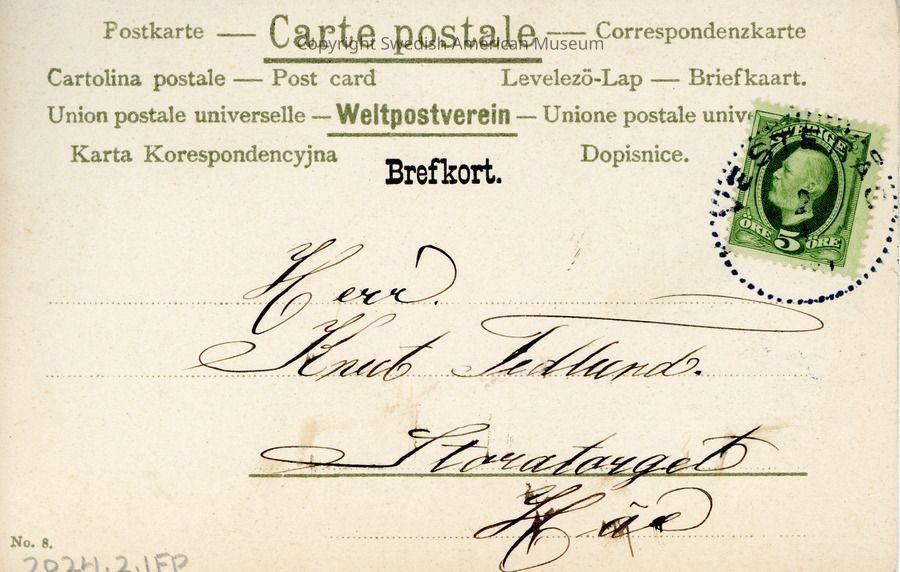 Postkarte — Carte postale — Correspondenzkarte
Copyright Swedish American Museum
Cartolina postale — Post card Levelezö-Lap — Briefkaart.
Union postale universelle — Weltpostverein — Unione postale unive
Karta Korespondencyjna Dopisnice.
Brefkort.
SVERIGE
ÖRE 5 ÖRE
Herr.
Knut Tedlund.
Storatorget
Här
No. 8.
2024.2.1FP